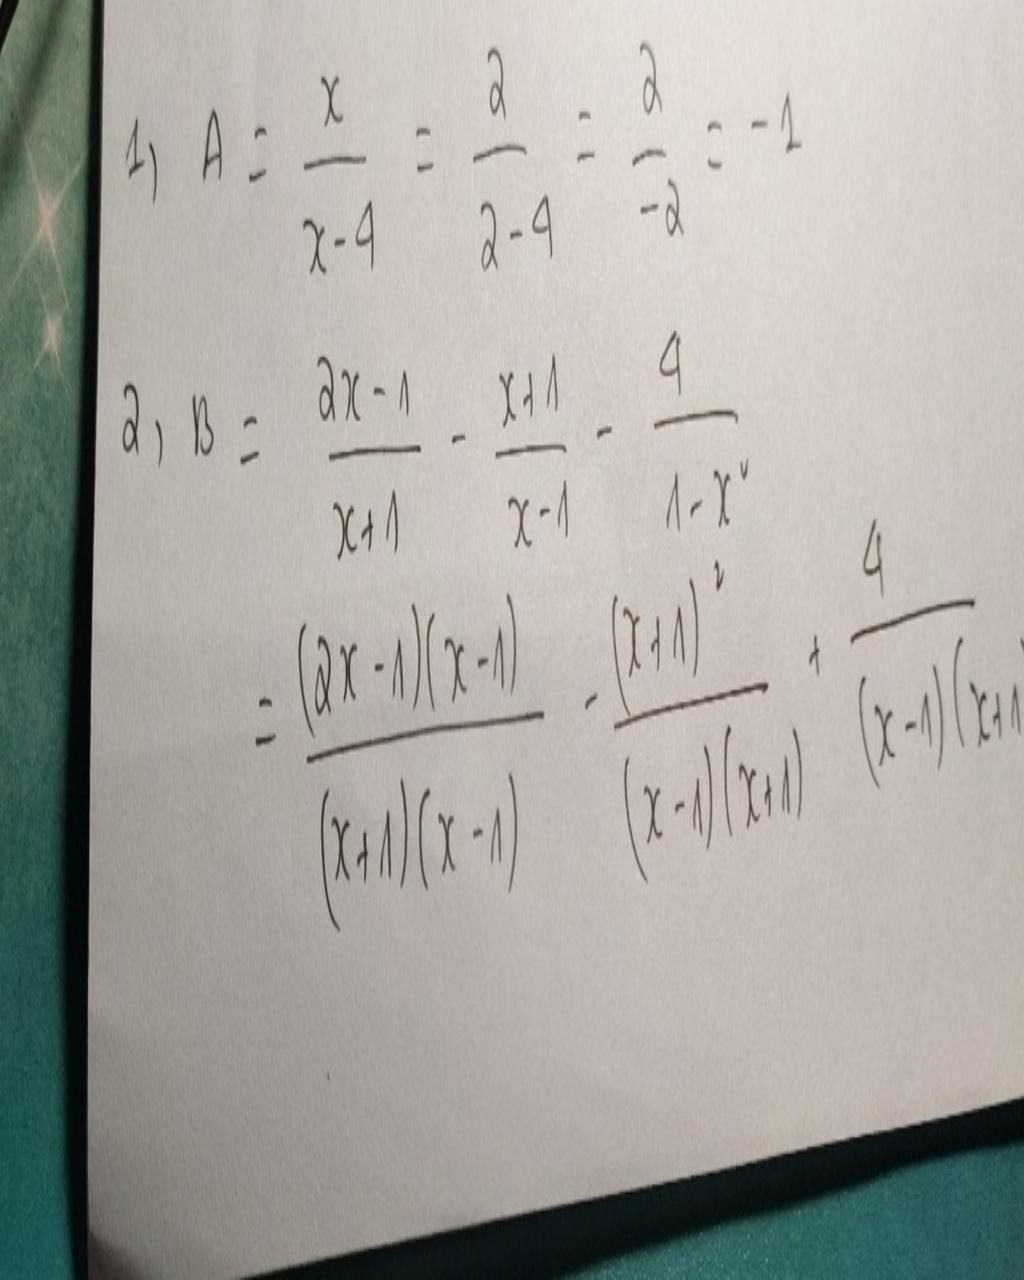 1, A = x/(x-4) = 2/(2-4) = 2/-2 = -1
2, B = (2x-1)/(x+1) - (x+1)/(x-1) - 4/(1-x²)
= (2x-1)(x-1)/(x+1)(x-1) - (x+1)²/(x-1)(x+1) + 4/(x-1)(x+1